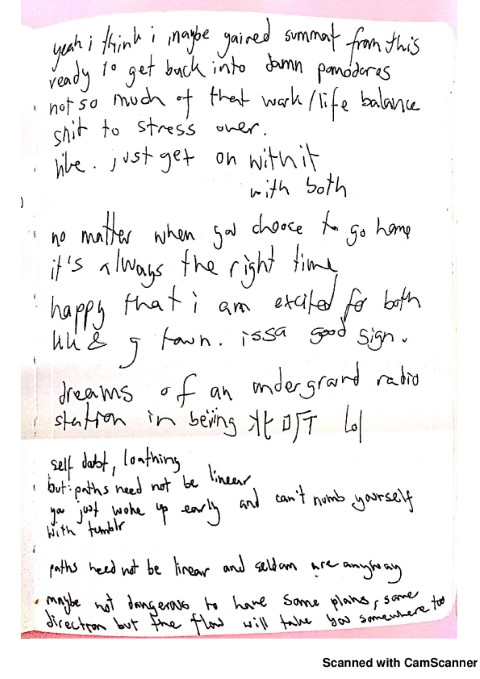 yeah i think i maybe gained summat from this
ready to get back into damn pomodoros
not so much of that work/life balance
shit to stress over.
like. just get on with it
with both
no matter when you choose to go home
it's always the right time
happy that i am excited for both
uk & g town. issa good sign.
dreams of an underground radio
station in beijing 北 lol
self doubt, loathing
but: paths need not be linear
you just woke up early and can't numb yourself
with tumblr
paths need not be linear and seldom are anyway
maybe not dangerous to have some plans, some
direction but the flow will take you somewhere too
Scanned with CamScanner